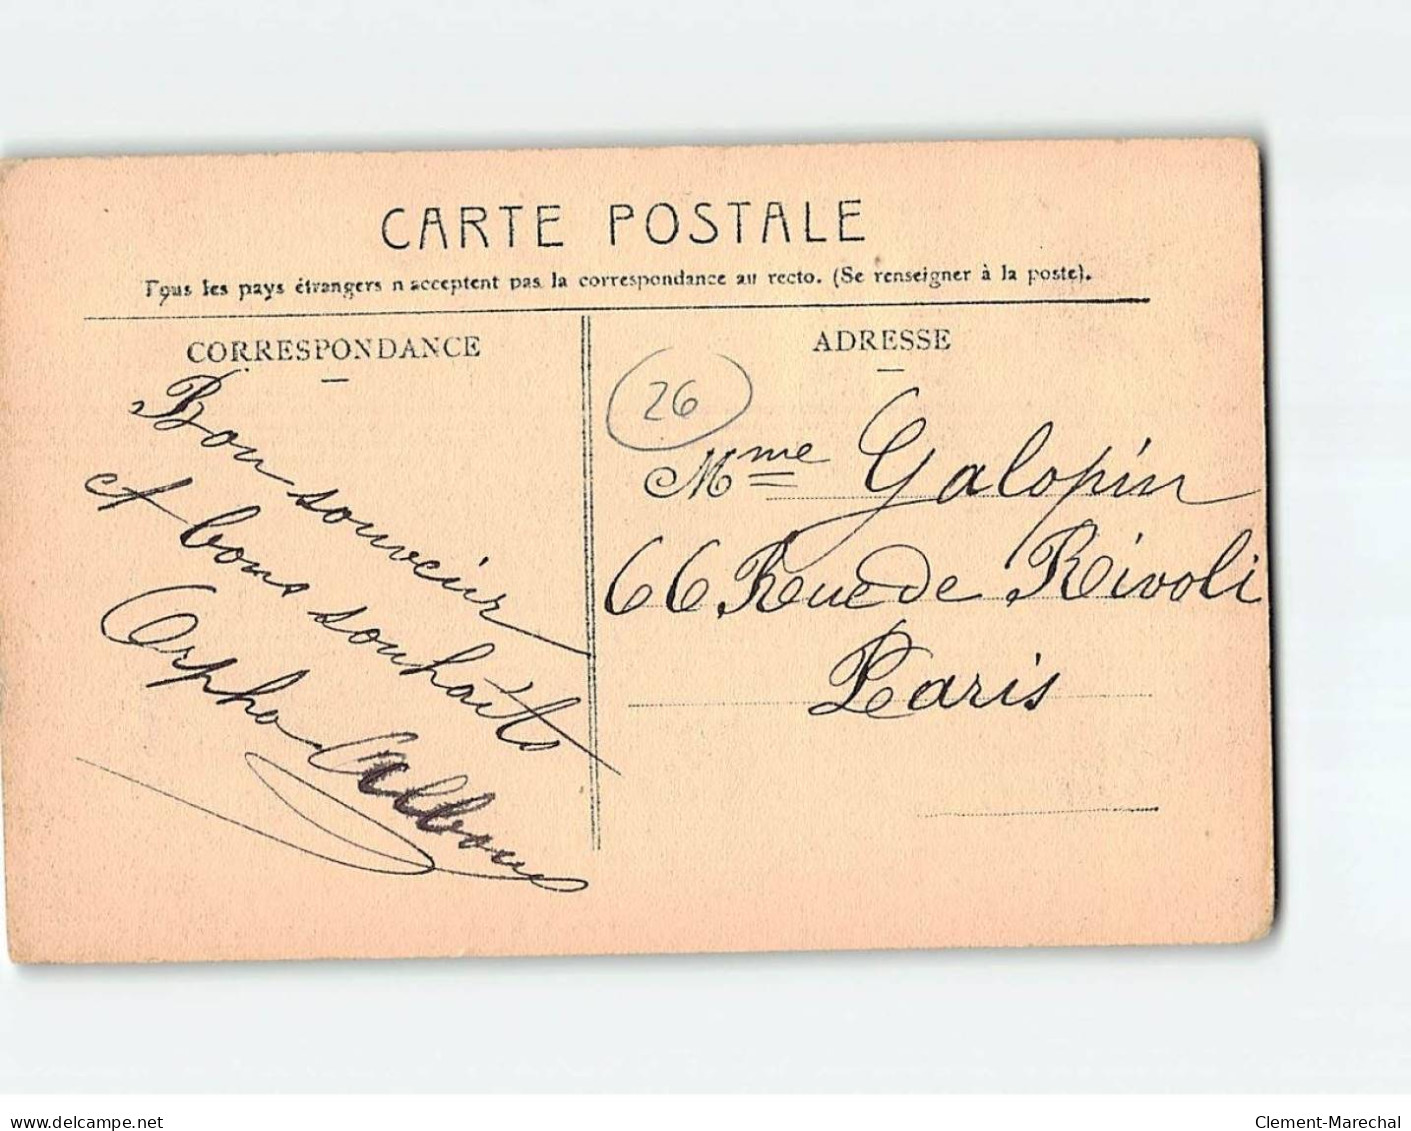 CARTE POSTALE
Tous les pays étrangers n acceptent pas la correspondance au recto. (Se renseigner à la poste).
CORRESPONDANCE
Bon souvenir
et bons souhaits
Orpha
ADRESSE
26
Mme Galopin
66 Rue de Rivoli
Paris
www.delcampe.net
Clement-Marechal